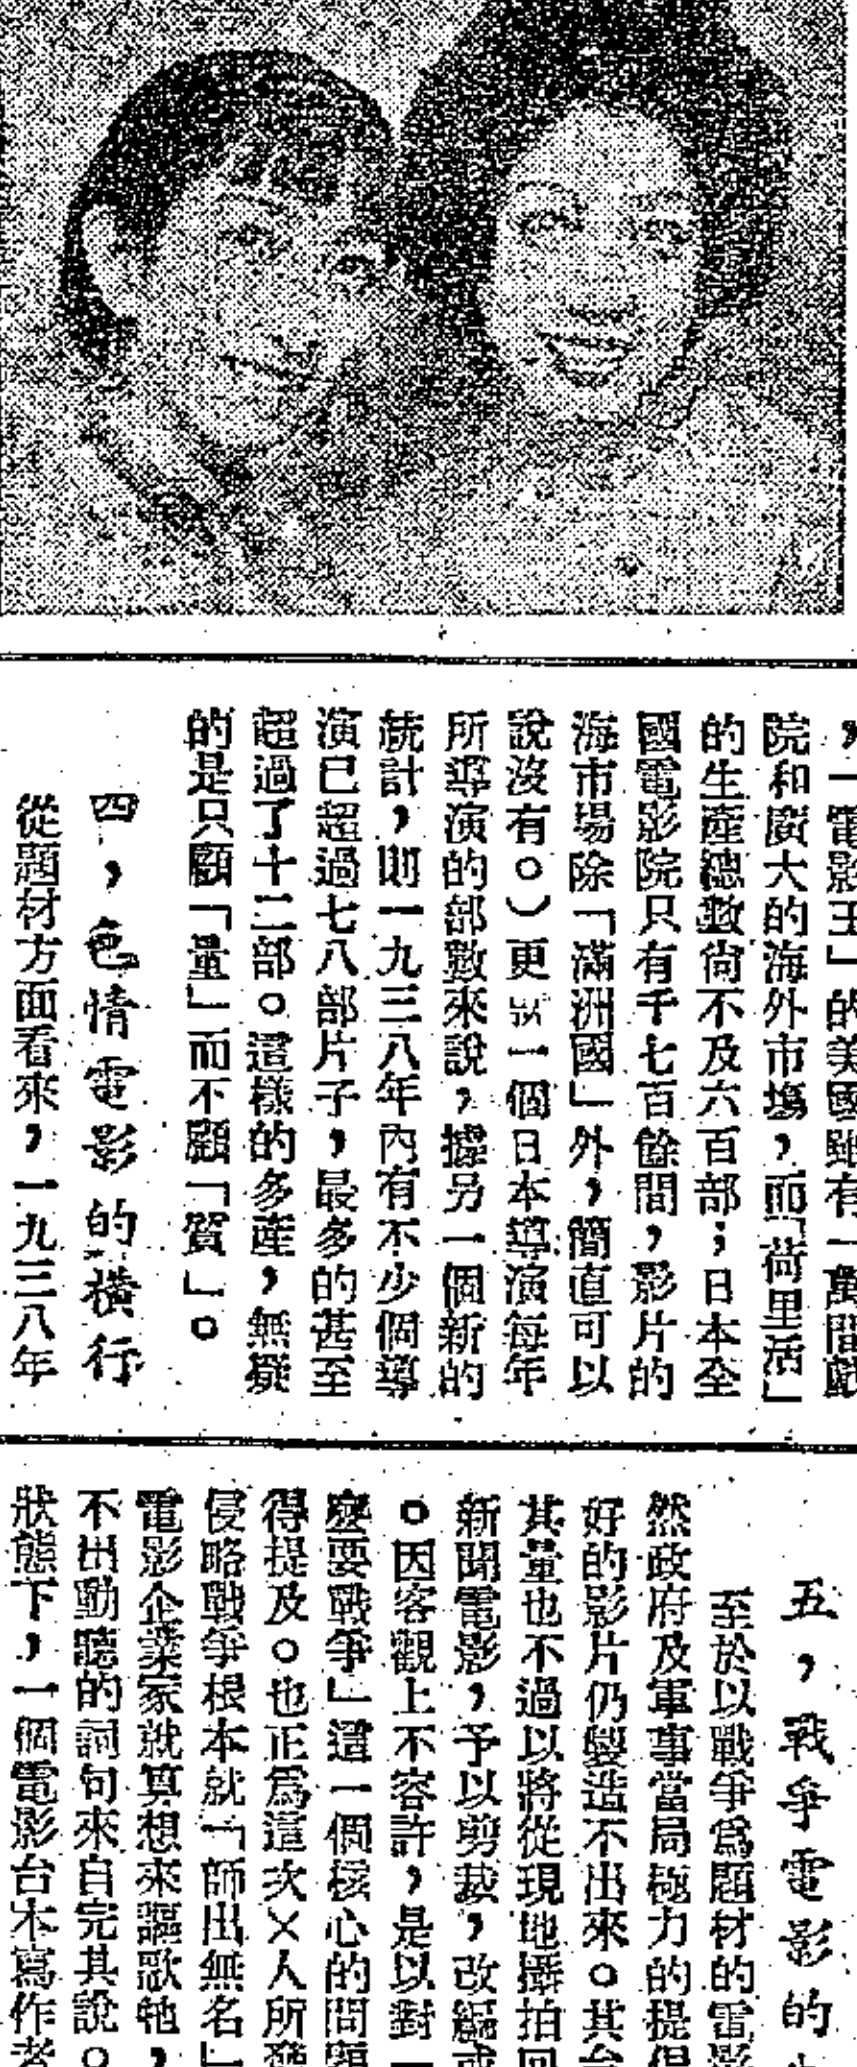 ，「電影王」的美國雖有一萬間戲
院和廣大的海外市場，而「荷里活」
的生產總數尚不及六百部；日本全
國電影院只有千七百餘間，影片的
海市場除「滿洲國」外，簡直可以
說沒有。）更就一個日本導演每年
所導演的部數來說，據另一個新的
統計，則一九三八年內有不少個導
演已超過七八部片子，最多的甚至
超過了十二部。這樣的多產，無疑
的是只顧「量」而不顧「質」。
四，色情電影的橫行
從題材方面看來，一九三八年
五，戰爭電影的
至於以戰爭爲題材的電影
然政府及軍事當局極力的提倡
好的影片仍製造不出來。其
其量也不過以將從現地攝拍回
新聞電影，予以剪裁，改編或
。因客觀上不容許，是以對
麼要戰爭」這一個核心的問題
得提及。也正爲這次×人所發
侵略戰爭根本就「師出無名」
電影企業家就算想來謳歌牠，
不出動聽的詞句來自完其說。
狀態下，一個電影台本寫作者